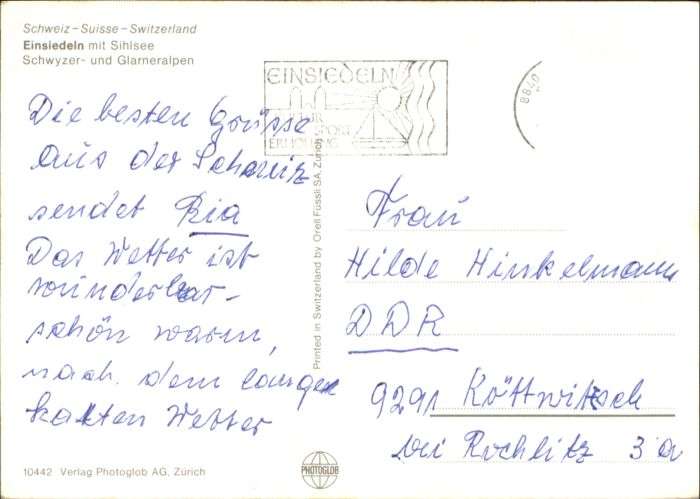 Schweiz – Suisse – Switzerland
Einsiedeln mit Sihlsee
Schwyzer- und Glarneralpen
EINSIEDELN
SPORT
ERHOLUNG
8840
Die besten Grüsse
aus der Schweiz
sendet Ria
Das Wetter ist
wunderbar-
schön warm,
nach dem langen
kalten Wetter
Printed in Switzerland by Orell Füssli SA, Zürich
Frau
Hilde Hinkelmann
DDR
9291 Köttwitzsch
bei Rochlitz 3a
10442 Verlag Photoglob AG, Zürich
PHOTOGLOB